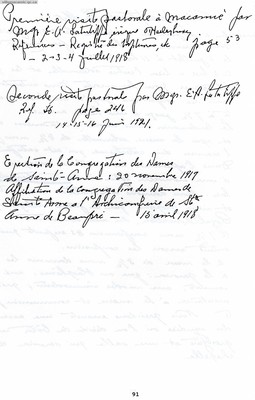 Première visite pastorale à Macamic par
Mgr E.-A. Latulippe évêque d'Haileybury
Références - Registre des baptêmes, etc page 53
- 2-3-4 juillet 1918
Seconde visite pastorale par Mgr. E.-A. Latulippe
Ref. Id. page 246
14-15-16 Juin 1921.
Erection de la Congrégation des Dames
de Sainte-Anne : 20 novembre 1917
Affiliation de la Congrégation des Dames de
Sainte Anne à l'Archiconfrérie de Ste
Anne de Beaupré - 15 avril 1918
91